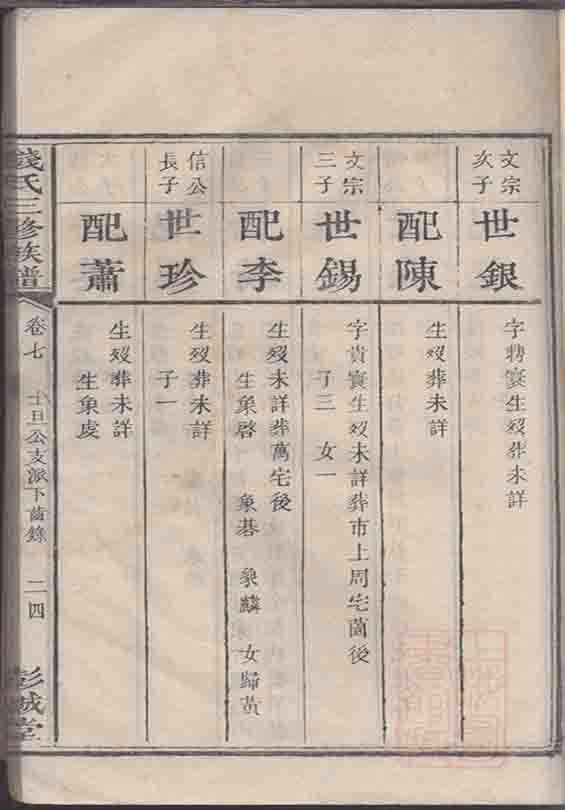 文宗
次子
世銀
字聘寰生歿葬未詳
配陳
生歿葬未詳
文宗
三子
世錫
字貴寰生歿未詳葬市上周宅菌後
子三 女一
配李
生歿未詳葬萬宅後
生象啓 象碁 象麟 女歸黃
信公
長子
世珍
生歿葬未詳
子一
配蕭
生歿葬未詳
生象虔
錢氏三修族譜
卷七 旦公支派下齒錄 二四
彭城堂